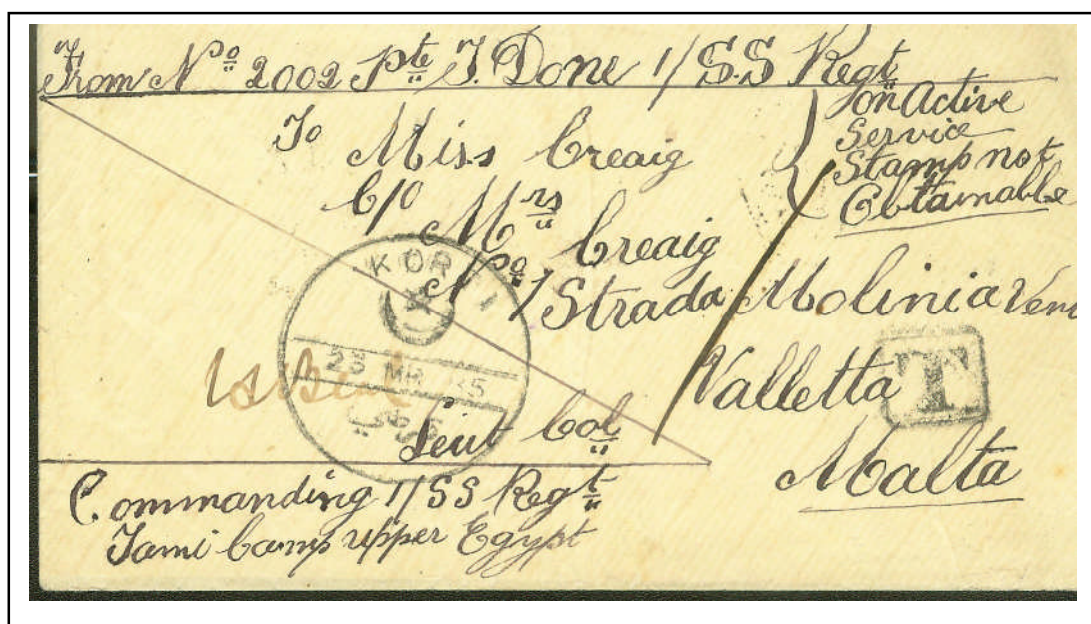 From Nº 2002 Pte J. Done 1/S.S Regt
on Active
Service
Stamp not
Obtainable
To Miss Creaig
C/o Mrs Creaig
Nº 1 Strada Molinia Vent
Valletta
T
Malta
KORTI
23 MR 85
Leut Col
Commanding 1/SS Regt
Tami Camp upper Egypt